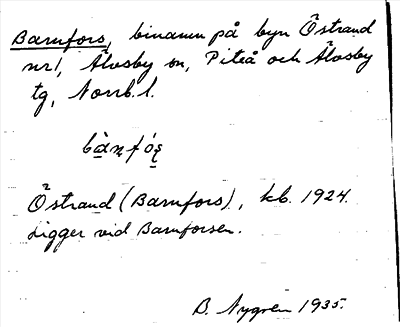 Barnfors, binamn på byn Östrand
nr 1, Älvsby sn, Piteå och Älvsby
tg, Norrb. l.
bànfǫ́ʂ
Östrand (Barnfors), kb. 1924.
Ligger vid Barnforsen.
B. Nygren 1935.